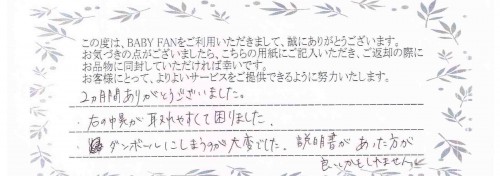 この度は、BABY FANをご利用いただきまして、誠にありがとうございます。
お気づきの点がございましたら、こちらの用紙にご記入いただき、ご返却の際に
お品物に同封していただければ幸いです。
お客様にとって、よりよいサービスをご提供できるように努力いたします。
2ヵ月間ありがとうございました。
・右の中象が取れやすくて困りました。
・ダンボールにしまうのが大変でした。説明書があった方が
良いかもしれません